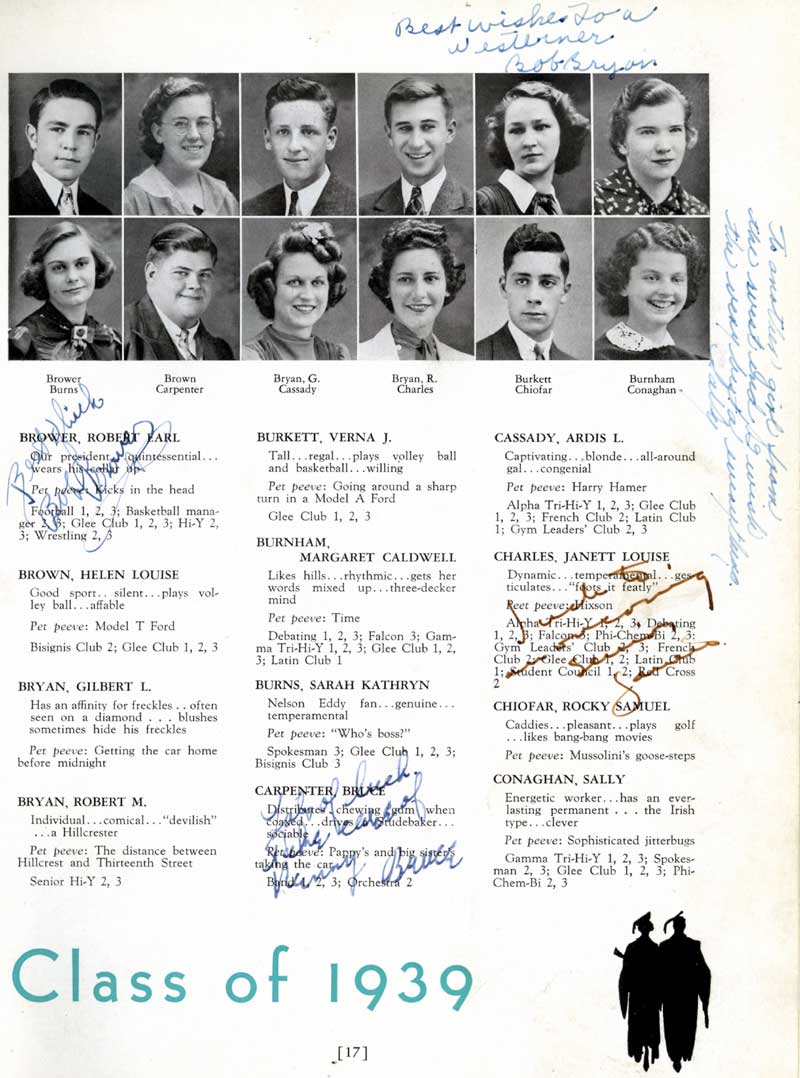 Best wishes to a
Westerner
Bob Bryan
Brower
Burns
Brown
Carpenter
Bryan, G.
Cassady
Bryan, R.
Charles
Burkett
Chiofar
Burnham
Conaghan
To another girl from
the west and I wish
the very best
Sally
BROWER, ROBERT EARL
Our president, quintessential...
wears his collar up
Pet peeve: Kicks in the head
Football 1, 2, 3; Basketball mana-
ger 2, 3; Glee Club 1, 2, 3; Hi-Y 2,
3; Wrestling 2, 3
Best Wishes
Bob Brower
BROWN, HELEN LOUISE
Good sport.. silent...plays vol-
ley ball...affable
Pet peeve: Model T Ford
Bisignis Club 2; Glee Club 1, 2, 3
BRYAN, GILBERT L.
Has an affinity for freckles . . often
seen on a diamond . . . blushes
sometimes hide his freckles
Pet peeve: Getting the car home
before midnight
BRYAN, ROBERT M.
Individual...comical..."devilish"
...a Hillcrester
Pet peeve: The distance between
Hillcrest and Thirteenth Street
Senior Hi-Y 2, 3
BURKETT, VERNA J.
Tall...regal...plays volley ball
and basketball...willing
Pet peeve: Going around a sharp
turn in a Model A Ford
Glee Club 1, 2, 3
BURNHAM,
MARGARET CALDWELL
Likes hills...rhythmic...gets her
words mixed up...three-decker
mind
Pet peeve: Time
Debating 1, 2, 3; Falcon 3; Gam-
ma Tri-Hi-Y 1, 2, 3; Glee Club 1, 2,
3; Latin Club 1
BURNS, SARAH KATHRYN
Nelson Eddy fan...genuine...
temperamental
Pet peeve: "Who's boss?"
Spokesman 3; Glee Club 1, 2, 3;
Bisignis Club 3
CARPENTER, BRUCE
Distributes chewing gum when
coaxed...drives a Studebaker...
sociable
Pet peeve: Pappy's and big sister's
taking the car
Band 1, 2, 3; Orchestra 2
Lots of luck
Take care of
Bruce
CASSADY, ARDIS L.
Captivating...blonde...all-around
gal...congenial
Pet peeve: Harry Hamer
Alpha Tri-Hi-Y 1, 2, 3; Glee Club
1, 2, 3; French Club 2; Latin Club
1; Gym Leaders' Club 2, 3
CHARLES, JANETT LOUISE
Dynamic...temperamental...ges-
ticulates..."foots it featly"
Pet peeve: Hixson
Alpha Tri-Hi-Y 1, 2, 3; Debating
1, 2, 3; Falcon 3; Phi-Chem-Bi 2, 3;
Gym Leaders' Club 2, 3; French
Club 2; Glee Club 1, 2; Latin Club
1; Student Council 1, 2; Red Cross
2
CHIOFAR, ROCKY SAMUEL
Caddies...pleasant...plays golf
...likes bang-bang movies
Pet peeve: Mussolini's goose-steps
CONAGHAN, SALLY
Energetic worker...has an ever-
lasting permanent . . . the Irish
type...clever
Pet peeve: Sophisticated jitterbugs
Gamma Tri-Hi-Y 1, 2, 3; Spokes-
man 2, 3; Glee Club 1, 2, 3; Phi-
Chem-Bi 2, 3
Class of 1939
[17]